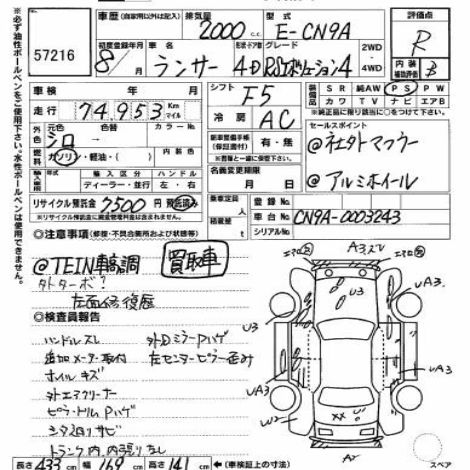 57216
車歴 (自家用以外は記入) 排気量 2000 c.c. 型式 E-CN9A
評価点 R
内装 補助評価 B
初度登録年月 8/ 車名 ランサー 形状・ドア数 4D グレード RSエボリューション4 2WD・4WD
車検 年 月 日
シフト F5
装備品 SR 純AW PS PW
カワ TV ナビ エアB
走行 74,953 Km マイル
冷房 AC
セールスポイント
@社外マフラー
@アルミホイール
外色 元色 シロ 色替 カラーNo
燃料 ガソリン・軽油・( )
車歴 輸入区分 ハンドル
ディーラー・並行 左・右
新車整備手帳 (保証書付) 有・無
名義変更期限 月 日
リサイクル預託金 7500 円 預託済み
※リサイクル預託金に資金管理料金は含まれません
乗車定員 人
積載量
登録No
車台No CN9A-0003243
シリアルNo
◎注意事項 (修復・不具合箇所および状態等)
@TEIN車高調 買取車
外ターボ?
左面修復歴
◎検査員報告
ハンドルスレ 外DミラーPハゲ
追加メーター取付 左センターピラー歪み
ホイルキズ
外エアクリーナー
ピラートリムPハゲ
シタ廻りサビ
トランク内 内張りなし
A3ズレ
U3
U3
UA3
UA3
UA3
U3
XX
U
W2
A2
スペア
長さ 433 cm 幅 169 cm 高さ 141 cm ← (車検証上の寸法)
※必ず油性ボールペンをご使用下さい。水性ボールペンは使用できません。